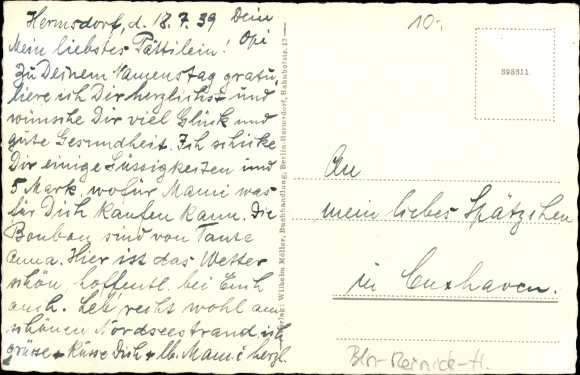 Hermsdorf, d. 18.7.39 Dein
Mein liebstes Pättilein! Opi
Zu Deinem Namenstag gratu,
liere ich Dir herzlichst und
wünsche Dir viel Glück und
gute Gesundheit. Ich schicke
Dir einige Süssigkeiten und
5 Mark, wofür Mami was
für Dich kaufen kann. Die
Bonbon sind von Tante
Anna. Hier ist das Wetter
schön, hoffentl. bei Euch
auch. Leb' recht wohl am
schönen Nordseestrand, ich
grüsse + küsse Dich + lb. Mami herzl.
Verlag: Wilhelm Möller, Buchhandlung, Berlin-Hermsdorf, Bahnhofstr. 13
10,-
898311
An
mein liebes Spätzchen
in Cuxhaven.
Bln-Reinick-H.